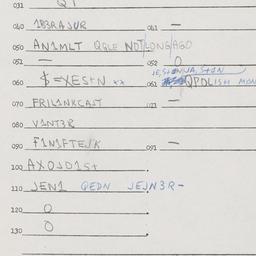 031 QT
040 183RAJUR 041 —
050 AN1MLT QGLE NOT/LONG/AGO
051 — 052 O
060 $=XES+N ** 061 QPOLISH MON
070 FRIL1NKCAST 071 —
080 V1NT3R
090 F1N1FTEJK 091 —
100 AXOJD1S+
110 JEN1 QEDN JEJN3R-
120 O
130 O